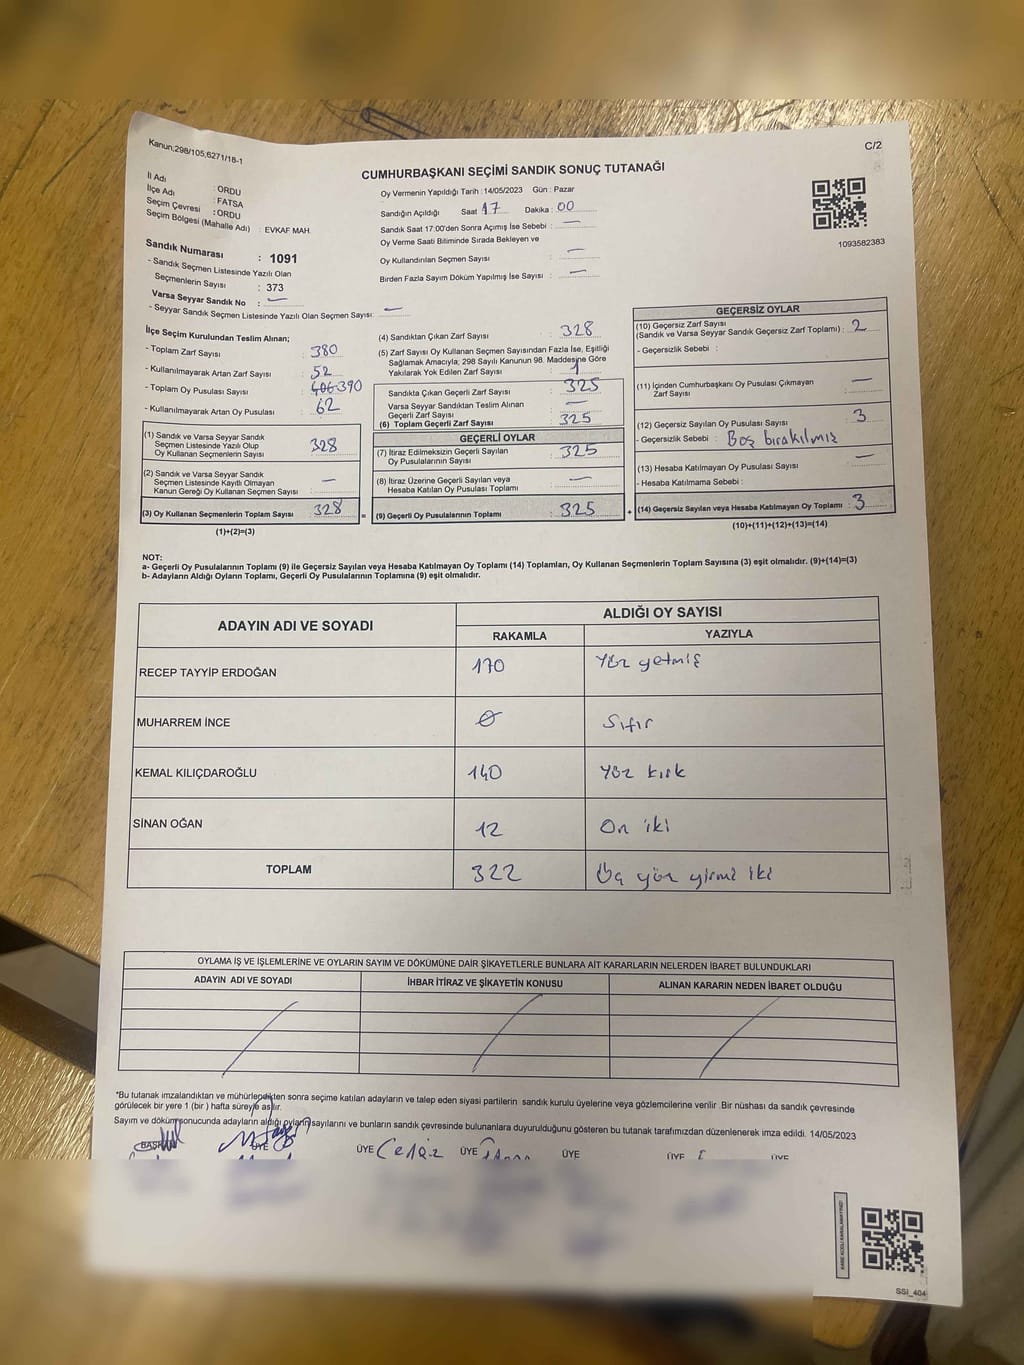 Kanun;298/105;6271/18-1
C/2
CUMHURBAŞKANI SEÇİMİ SANDIK SONUÇ TUTANAĞI
İl Adı : ORDU
İlçe Adı : FATSA
Seçim Çevresi : ORDU
Seçim Bölgesi (Mahalle Adı) : EVKAF MAH.
Oy Vermenin Yapıldığı Tarih : 14/05/2023 Gün : Pazar
Sandığın Açıldığı Saat 17 Dakika : 00
Sandık Saat 17:00'den Sonra Açımış İse Sebebi : —
Oy Verme Saati Bitiminde Sırada Bekleyen ve
Oy Kullandırılan Seçmen Sayısı : —
Birden Fazla Sayım Döküm Yapılmış İse Sayısı : —
1093582383
Sandık Numarası : 1091
- Sandık Seçmen Listesinde Yazılı Olan
Seçmenlerin Sayısı : 373
Varsa Seyyar Sandık No : —
- Seyyar Sandık Seçmen Listesinde Yazılı Olan Seçmen Sayısı: —
İlçe Seçim Kurulundan Teslim Alınan;
- Toplam Zarf Sayısı : 380
- Kullanılmayarak Artan Zarf Sayısı : 52
- Toplam Oy Pusulası Sayısı : 406 390
- Kullanılmayarak Artan Oy Pusulası : 62
(1) Sandık ve Varsa Seyyar Sandık
Seçmen Listesinde Yazılı Olup
Oy Kullanan Seçmenlerin Sayısı : 328
(2) Sandık ve Varsa Seyyar Sandık
Seçmen Listesinde Kayıtlı Olmayan
Kanun Gereği Oy Kullanan Seçmen Sayısı : —
(3) Oy Kullanan Seçmenlerin Toplam Sayısı : 328
(1)+(2)=(3)
(4) Sandıktan Çıkan Zarf Sayısı : 328
(5) Zarf Sayısı Oy Kullanan Seçmen Sayısından Fazla İse, Eşitliği
Sağlamak Amacıyla; 298 Sayılı Kanunun 98. Maddesine Göre
Yakılarak Yok Edilen Zarf Sayısı : 1
Sandıkta Çıkan Geçerli Zarf Sayısı : 325
Varsa Seyyar Sandıktan Teslim Alınan
Geçerli Zarf Sayısı : —
(6) Toplam Geçerli Zarf Sayısı : 325
GEÇERLİ OYLAR
(7) İtiraz Edilmeksizin Geçerli Sayılan
Oy Pusulalarının Sayısı : 325
(8) İtiraz Üzerine Geçerli Sayılan veya
Hesaba Katılan Oy Pusulası Toplamı : —
= (9) Geçerli Oy Pusulalarının Toplamı : 325
GEÇERSİZ OYLAR
(10) Geçersiz Zarf Sayısı
(Sandık ve Varsa Seyyar Sandık Geçersiz Zarf Toplamı) : 2
- Geçersizlik Sebebi :
(11) İçinden Cumhurbaşkanı Oy Pusulası Çıkmayan
Zarf Sayısı : —
(12) Geçersiz Sayılan Oy Pusulası Sayısı : 3
- Geçersizlik Sebebi : Boş bırakılmış
(13) Hesaba Katılmayan Oy Pusulası Sayısı : —
- Hesaba Katılmama Sebebi :
+ (14) Geçersiz Sayılan veya Hesaba Katılmayan Oy Toplamı : 3
(10)+(11)+(12)+(13)=(14)
NOT:
a- Geçerli Oy Pusulalarının Toplamı (9) ile Geçersiz Sayılan veya Hesaba Katılmayan Oy Toplamı (14) Toplamları, Oy Kullanan Seçmenlerin Toplam Sayısına (3) eşit olmalıdır. (9)+(14)=(3)
b- Adayların Aldığı Oyların Toplamı, Geçerli Oy Pusulalarının Toplamına (9) eşit olmalıdır.
ADAYIN ADI VE SOYADI
ALDIĞI OY SAYISI
RAKAMLA YAZIYLA
RECEP TAYYİP ERDOĞAN 170 Yüz yetmiş
MUHARREM İNCE 0 Sıfır
KEMAL KILIÇDAROĞLU 140 Yüz kırk
SİNAN OĞAN 12 On iki
TOPLAM 322 Üç yüz yirmi iki
OYLAMA İŞ VE İŞLEMLERİNE VE OYLARIN SAYIM VE DÖKÜMÜNE DAİR ŞİKAYETLERLE BUNLARA AİT KARARLARIN NELERDEN İBARET BULUNDUKLARI
ADAYIN ADI VE SOYADI İHBAR İTİRAZ VE ŞİKAYETİN KONUSU ALINAN KARARIN NEDEN İBARET OLDUĞU
*Bu tutanak imzalandıktan ve mühürlendikten sonra seçime katılan adayların ve talep eden siyasi partilerin sandık kurulu üyelerine veya gözlemcilerine verilir .Bir nüshası da sandık çevresinde
görülecek bir yere 1 (bir ) hafta süreyle asılır.
Sayım ve döküm sonucunda adayların aldığı oyların sayılarını ve bunların sandık çevresinde bulunanlara duyurulduğunu gösteren bu tutanak tarafımızdan düzenlenerek imza edildi. 14/05/2023
BAŞKAN ÜYE ÜYE ÜYE ÜYE ÜYE ÜYE
SSI_404